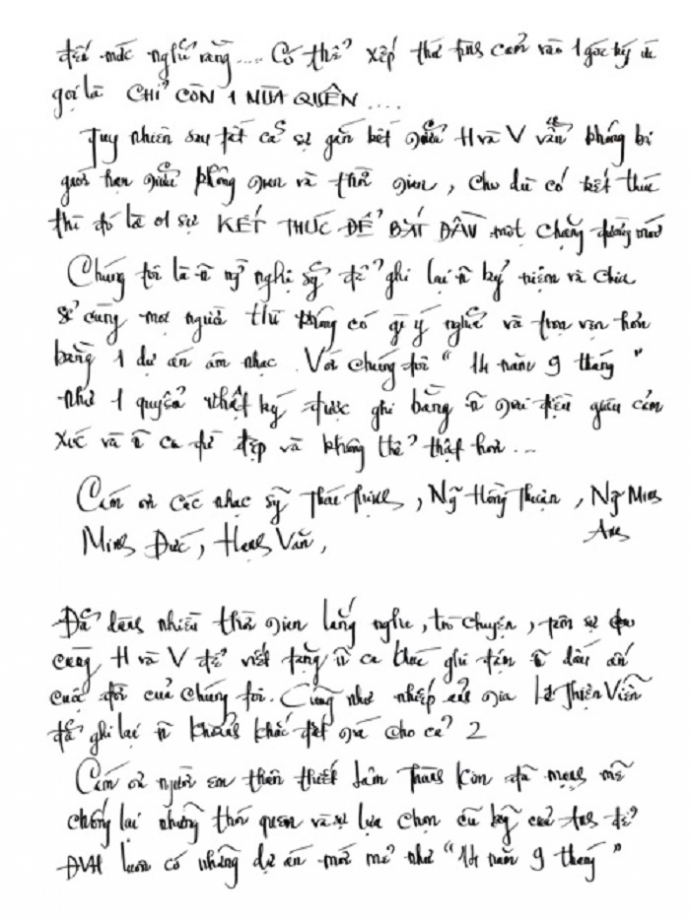 đến mức nghĩ rằng.... Có thể xếp thứ tình cảm vào 1 góc ký ức
gọi là CHỈ CÒN 1 NỬA QUÊN ....
Tuy nhiên sau tất cả sự gắn kết giữa H và V vẫn không bị
giới hạn giữa không gian và thời gian, cho dù có kết thúc
thì đó là sự KẾT THÚC ĐỂ BẮT ĐẦU một chặng đường mới
Chúng tôi là n~ nghệ sỹ để ghi lại n~ kỷ niệm và chia
sẻ cùng mọi người thì không có gì ý nghĩa và trọn vẹn hơn
bằng 1 dự án âm nhạc. Với chúng tôi "14 năm 9 tháng"
như 1 quyển nhật ký được ghi bằng n~ giai điệu giàu cảm
xúc và n~ ca từ đẹp và không thể thật hơn ...
Cám ơn các nhạc sỹ Thái Thịnh, Ng~ Hồng Thuận, Ng~ Minh
Anh
Minh Đức, Hoạ Văn,
Đã dành nhiều thời gian lắng nghe, trò chuyện, tâm sự
cùng H và V để viết tặng n~ ca khúc ghi đậm n~ dấu ấn
cuộc đời của chúng tôi. Cũng như nhiếp ảnh gia Lê Thiện Viễn
đã ghi lại n~ khoảnh khắc đắt giá cho cả 2
Cám ơn người em thân thiết Lâm Thành Kòn đã mạnh mẽ
chống lại những thói quen và sự lựa chọn cũ kỹ của Anh để
ĐVH luôn có những dự án mới mẻ như "14 năm 9 tháng"